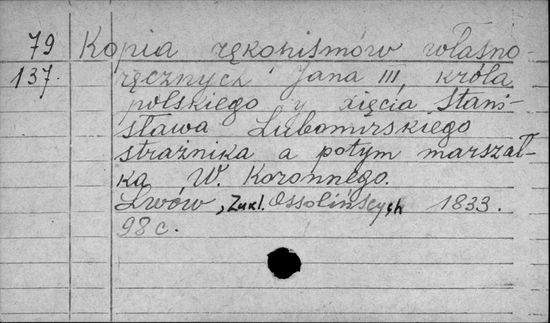 79 Kopia rękonismów własno-
137. ręcznych Jana III, króla
polskiego y xięcia Stani-
sława Lubomirskiego
strażnika a potym marszał-
ka W. Koronnego.
Lwów, Zakł. Ossolińscych 1833.
98 c.